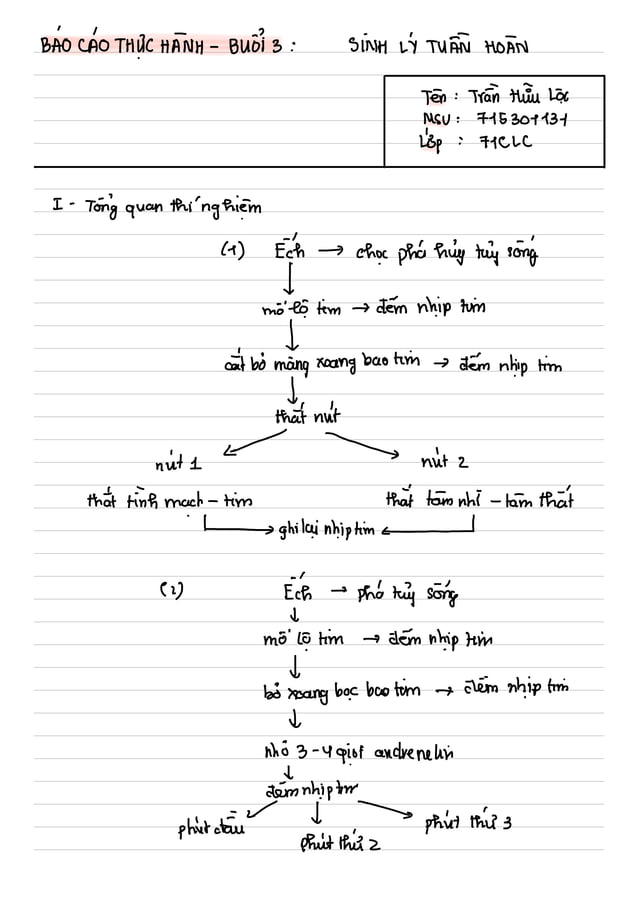 BÁO CÁO THỰC HÀNH - BUỔI 3 : SINH LÝ TUẦN HOÀN
Tên : Trần Hữu Lộc
MSV : 715301131
Lớp : 71CLC
I - Tổng quan thí nghiệm
(1) Ếch → chọc phá hủy tủy sống
mổ lộ tim → đếm nhịp tim
cắt bỏ màng xoang bao tim → đếm nhịp tim
thắt nút
nút 1 nút 2
thắt tĩnh mạch - tim thắt tâm nhĩ - tâm thất
ghi lại nhịp tim
(2) Ếch → phá tủy sống
mổ lộ tim → đếm nhịp tim
bỏ xoang bọc bao tim → đếm nhịp tim
nhỏ 3-4 giọt andrenelin
đếm nhịp tim
phút đầu phút thứ 2 phút thứ 3